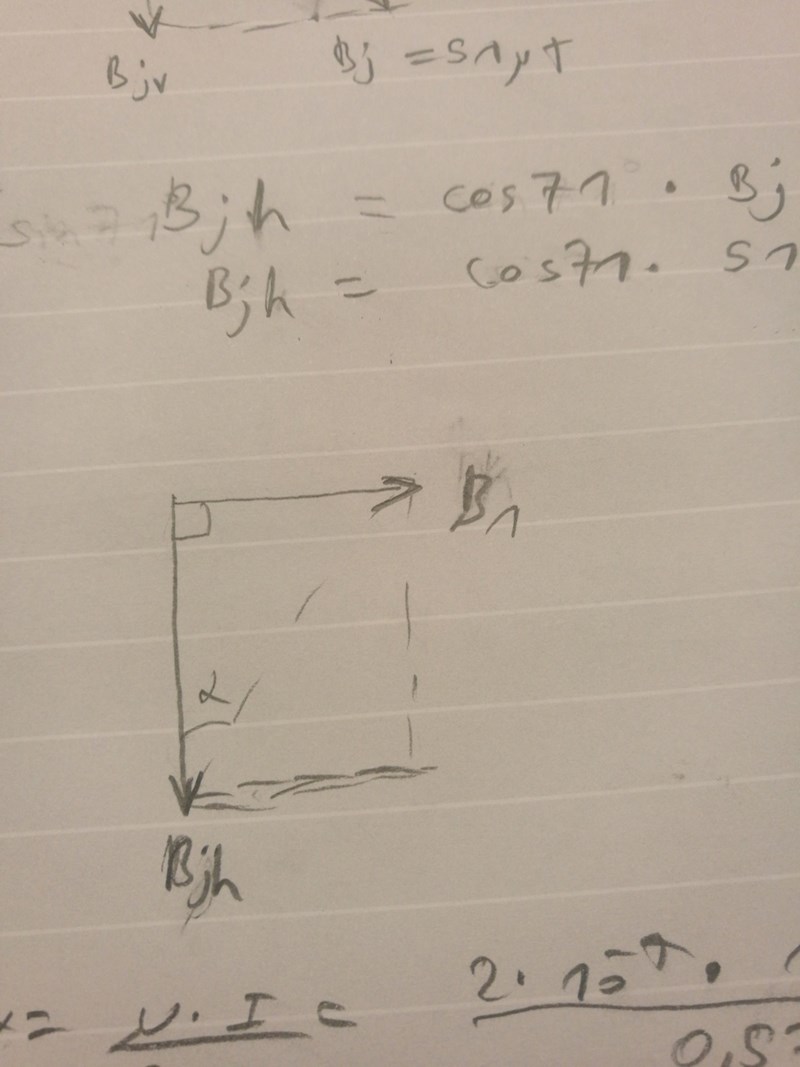 Bjv
Bj = 51 µT
Bjh = cos 71° · Bj
Bjh = cos 71 · 51
B1
α
Bjh
= μ · I =
2 · 10⁻⁷ ·
0,5